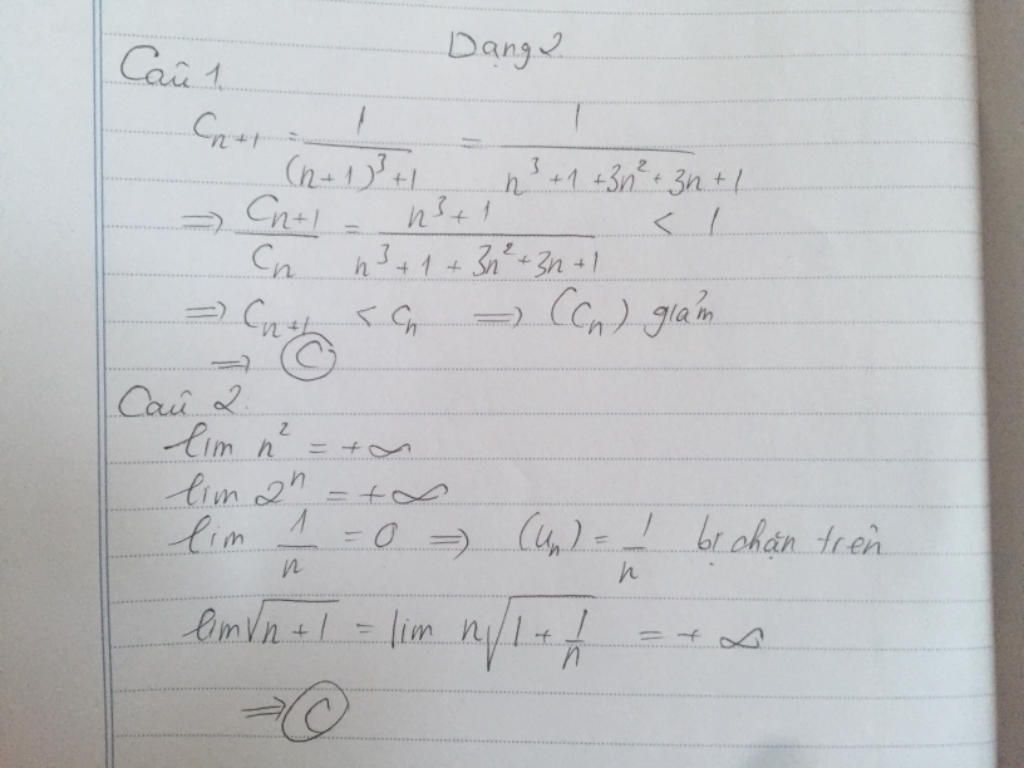 Dạng 2
Câu 1.
C_{n+1} = \frac{1}{(n+1)^3+1} = \frac{1}{n^3+1+3n^2+3n+1}
=> \frac{C_{n+1}}{C_n} = \frac{n^3+1}{n^3+1+3n^2+3n+1} < 1
=> C_{n+1} < C_n => (C_n) giảm
=> C
Câu 2.
lim n^2 = +∞
lim 2^n = +∞
lim \frac{1}{n} = 0 => (U_n) = \frac{1}{n} bị chặn trên
lim \sqrt{n+1} = lim n\sqrt{1+\frac{1}{n}} = +∞
=> C